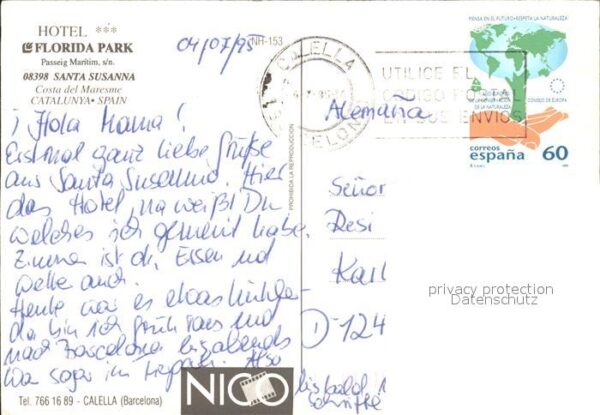 HOTEL ***
FLORIDA PARK
Passeig Marítim, s/n.
08398 SANTA SUSANNA
Costa del Maresme
CATALUNYA • SPAIN
04/07/95
NH-153
CALELLA
BARCELONA
UTILICE EL
CODIGO POSTAL
EN SUS ENVIOS
PIENSA EN EL FUTURO • RESPETA LA NATURALEZA
CONSEJO DE EUROPA
correos
españa 60
¡ Hola Mama !
Erstmal ganz liebe Grüße
aus Santa Susanna. Hier
das Hotel, na weißt Du
welches ich gemeint habe.
Zimmer ist ok, Essen und
Wetter auch.
Heute war es etwas
da bin ich früh raus und
nach Barcelona bis abends
War sogar im Also
bis bald
PROHIBIDA LA REPRODUCCION
Alemaña
Señor
Resi
Karl
D-124
privacy protection
Datenschutz
NICO
Tel. 766 16 89 - CALELLA (Barcelona)